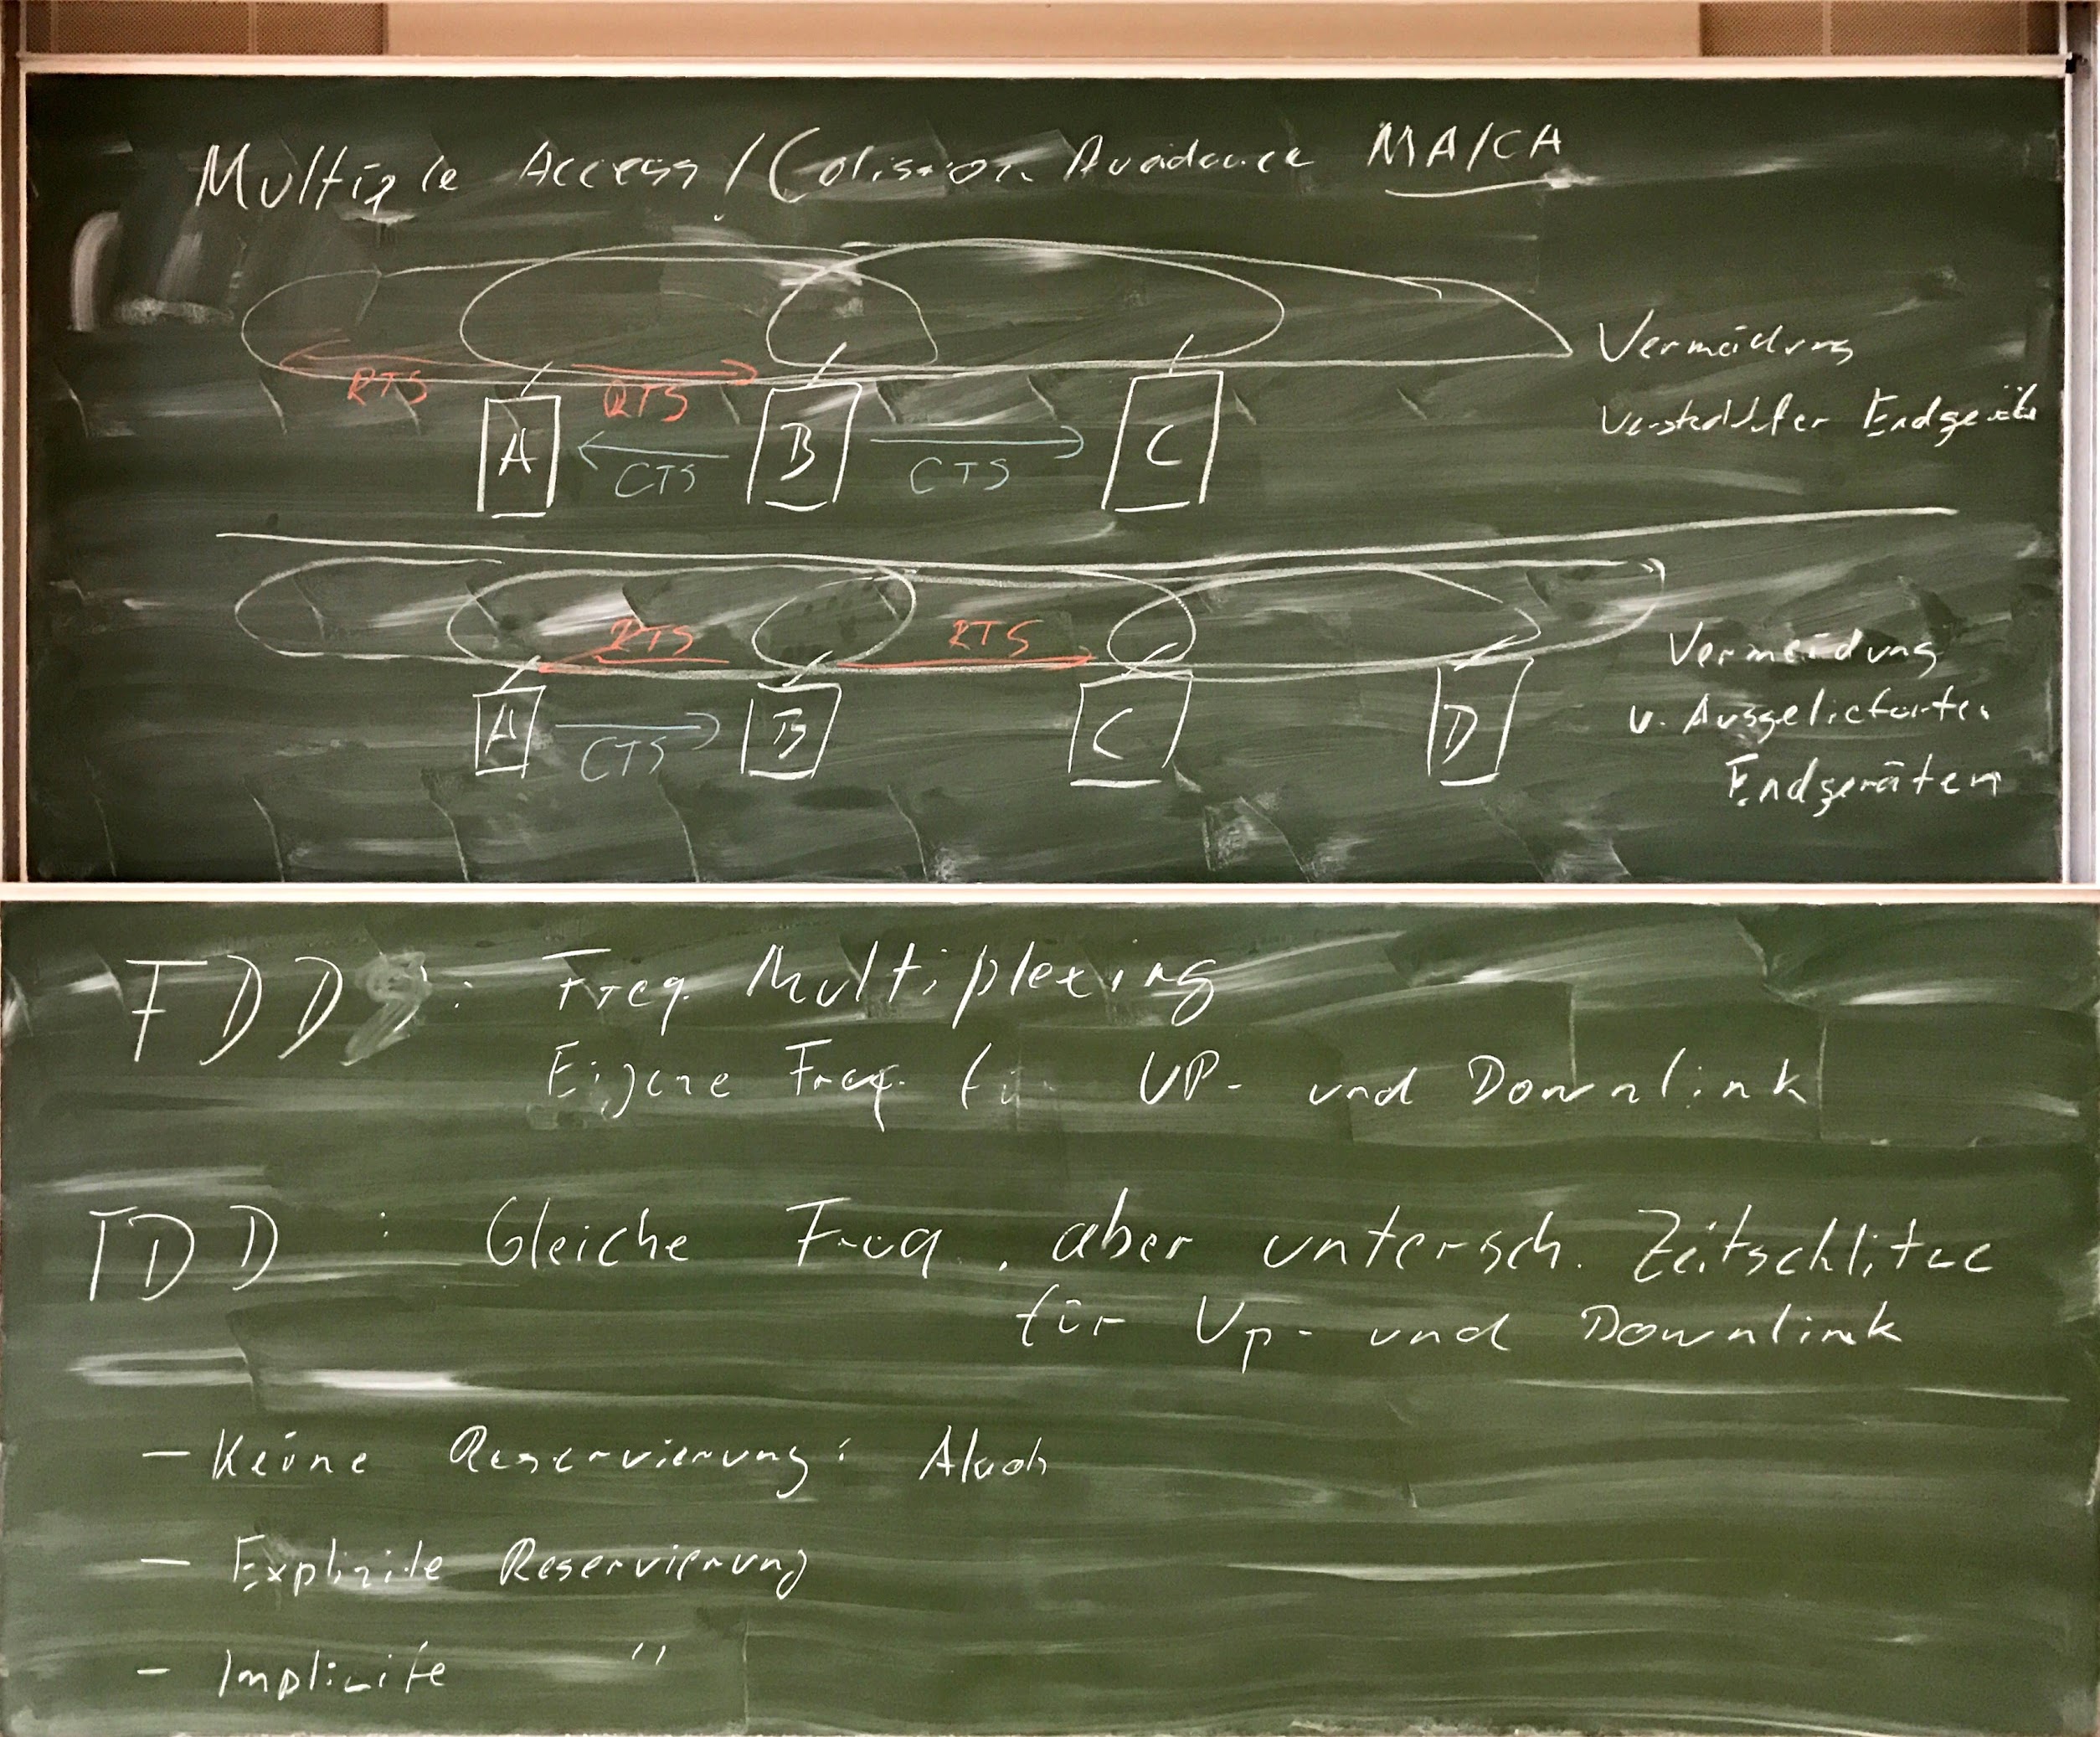 Multiple Access / Colision Avoidance MA/CA
RTS RTS
CTS CTS
A B C
Vermeidung
versteckter Endgeräte
RTS RTS
A B C D
CTS
Vermeidung
v. Ausgelieferten
Endgeräten
FDD : Freq. Multiplexing
Eigene Freq. für UP- und Downlink
TDD : Gleiche Freq. aber untersch. Zeitschlitze
für Up- und Downlink
- Keine Reservierung: Aloah
- Explizite Reservierung
- Implizite "